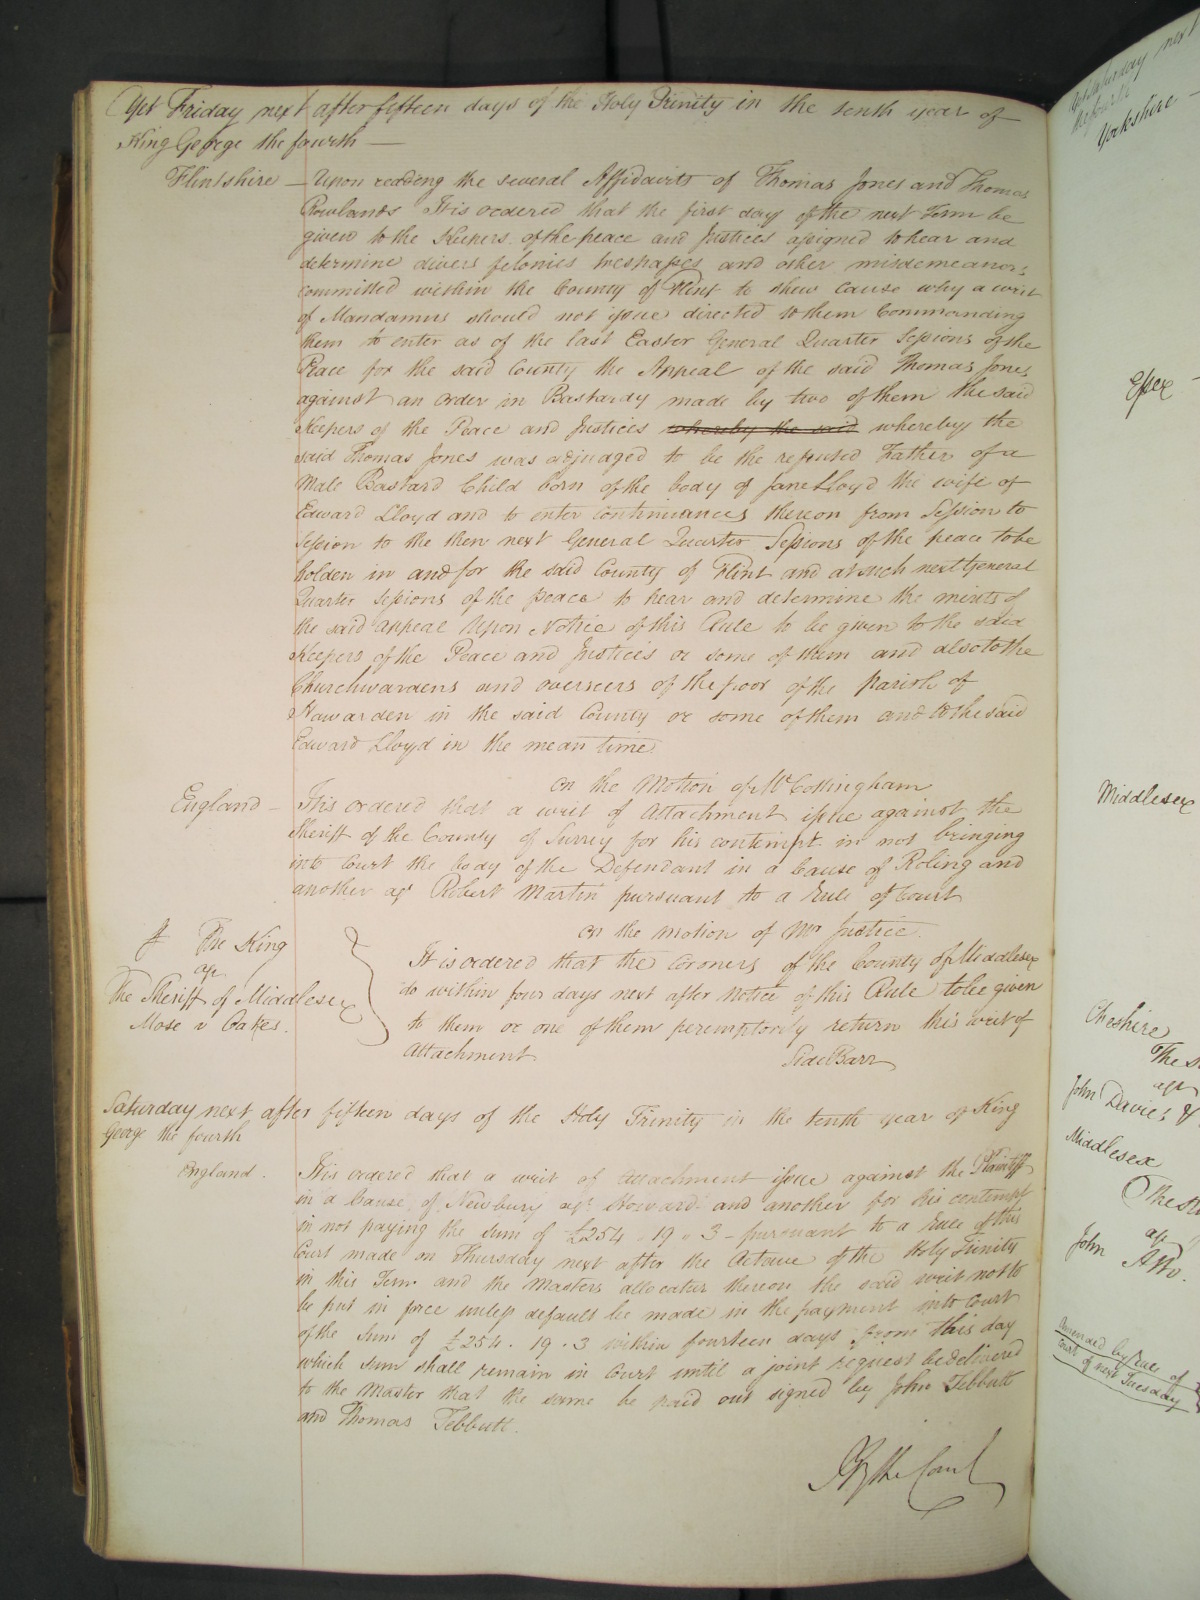 Yet Friday next after fifteen days of the Holy Trinity in the tenth year of
King George the fourth —
Flintshire — Upon reading the several Affidavits of Thomas Jones and Thomas
Rowlands It is ordered that the first day of the next Term be
given to the Keepers of the peace and Justices assigned to hear and
determine divers felonies trespasses and other misdemeanors
committed within the County of Flint to shew cause why a writ
of Mandamus should not issue directed to them Commanding
them to enter as of the last Easter General Quarter Sessions of the
Peace for the said County the Appeal of the said Thomas Jones
against an order in Bastardy made by two of them the said
Keepers of the Peace and Justices whereby the said whereby the
said Thomas Jones was adjudged to be the reputed Father of a
Male Bastard Child born of the body of Jane Lloyd the wife of
Edward Lloyd and to enter continuances thereon from Session to
Session to the then next General Quarter Sessions of the peace to be
holden in and for the said County of Flint and at such next General
Quarter Sessions of the peace to hear and determine the merits of
the said appeal Upon Notice of this Rule to be given to the said
Keepers of the Peace and Justices or some of them and also to the
Churchwardens and overseers of the poor of the parish of
Hawarden in the said County or some of them and to the said
Edward Lloyd in the mean time.
On the Motion of Mr Cottingham
England — It is ordered that a writ of Attachment issue against the
Sheriff of the County of Surrey for his contempt in not bringing
into Court the body of the Defendant in a Cause of Roling and
another agt Robert Martin pursuant to a Rule of Court
On the motion of Mr Justice.
The King
agt
The Sheriff of Middlesex
Mose v Oakes.
It is ordered that the Coroners of the County of Middlesex
do within four days next after Notice of this Rule to be given
to them or one of them peremptorily return this writ of
Attachment
Side Barr
Saturday next after fifteen days of the Holy Trinity in the tenth year of King
George the fourth
England. It is ordered that a writ of attachment issue against the Plaintiff
in a Cause of Newbury agt Howard and another for his contempt
in not paying the sum of £254 " 19 " 3 — pursuant to a Rule of this
Court made on Thursday next after the Octave of the Holy Trinity
in this Term and the Masters allocatur thereon the said writ not to
be put in force unless default be made in the payment into Court
of the Sum of £254 . 19 . 3 within fourteen days from this day
which sum shall remain in Court until a joint request be delivered
to the Master that the same be paid out signed by John Tebbutt
and Thomas Tebbutt.
By the Court
Yorkshire
Essex
Middlesex
Cheshire
The
agt
John Davies &
Middlesex
The
agt
John
Amended by Rule of
Court of next Tuesday